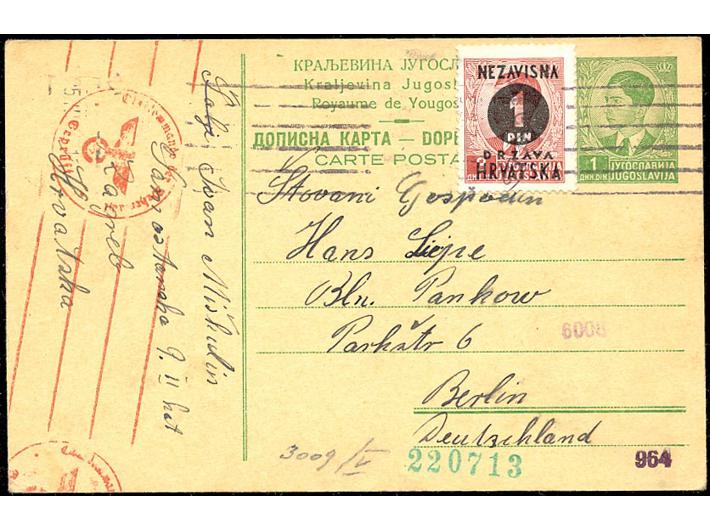 КРАЉЕВИНА ЈУГОСЛ
Kraljevina Jugosl
Royaume de Yougos
ДОПИСНА КАРТА — DOPI
CARTE POSTA
NEZAVISNA
1
DIN
DRŽAVA
HRVATSKA
1
ДИН. DIN.
ЈУГОСЛАВИЈА
JUGOSLAVIJA
Geprüft
Šalje Ivan Miškulin
9. II kat
Zagreb
Hrvatska
Štovani Gospodin
Hans Liepe
Bln. Pankow
Parkstr 6
6008
Berlin
Deutschland
3009/V
220713
964